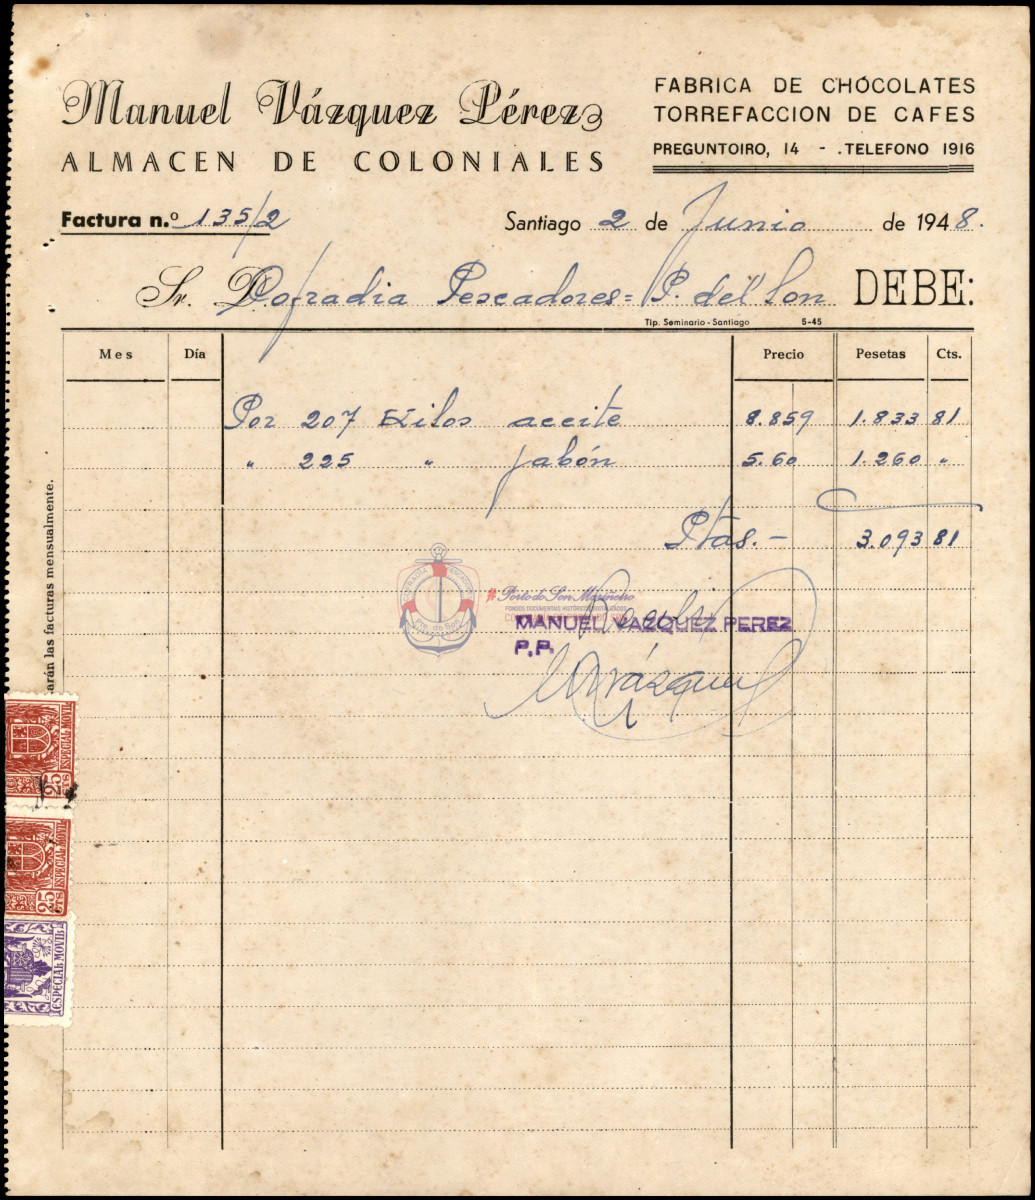 Manuel Vázquez Pérez
ALMACEN DE COLONIALES
FABRICA DE CHOCOLATES
TORREFACCION DE CAFES
PREGUNTOIRO, 14 - TELEFONO 1916
Factura n.º 135/2
Santiago 2 de Junio de 1948.
Sr. D. Cofradia Pescadores = P. del Son DEBE:
Tip. Seminario - Santiago 5-45
Mes Día Precio Pesetas Cts.
Por 207 Kilos aceite 8.859 1.833 81
" 225 " jabón 5.60 1.260 "
Ptas.- 3.093 81
arán las facturas mensualmente.
COFRADÍA PESCADORES
Pto. do Son
#Porto do Son Mariñeiro
FONDOS DOCUMENTAIS HISTÓRICOS DIXITALIZADOS
Recibí
MANUEL VAZQUEZ PEREZ
P.P.
MVázquez
ESPECIAL MOVIL
25 CTS
ESPECIAL MOVIL
25 CTS
ESPECIAL MOVIL